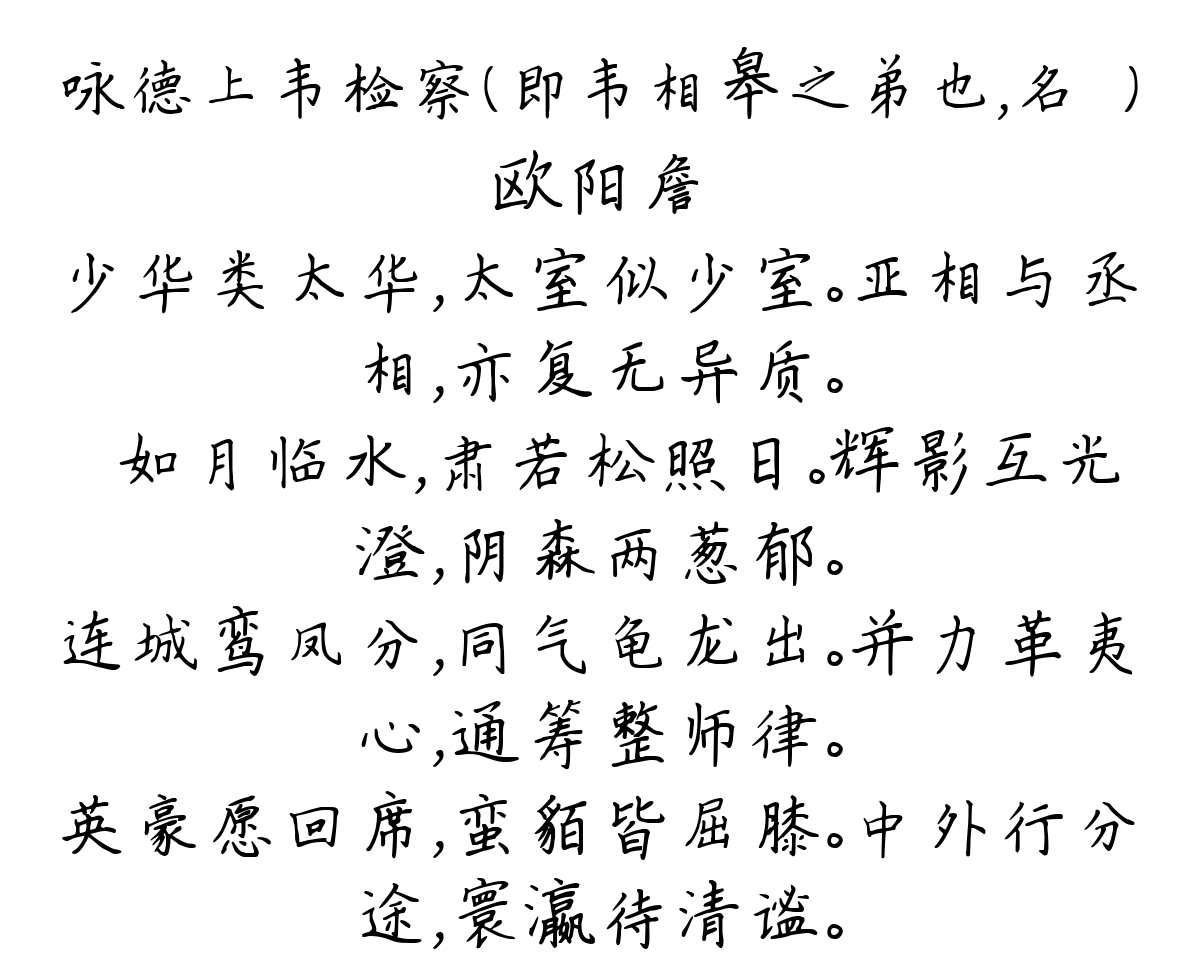 咏德上韦检察(即韦相皋之弟也,名 )
欧阳詹
少华类太华,太室似少室。亚相与丞
相,亦复无异质。
如月临水,肃若松照日。辉影互光
澄,阴森两葱郁。
连城鸾凤分,同气龟龙出。并力革夷
心,通筹整师律。
英豪愿回席,蛮貊皆屈膝。中外行分
途,寰瀛待清谧。